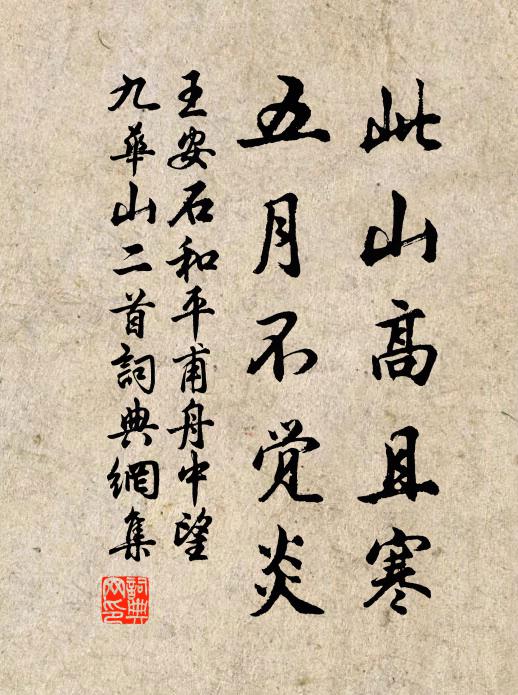 此山高且寒
五月不觉炎
王安石和平甫舟中望
九华山二首詞典網集
詞典
网印